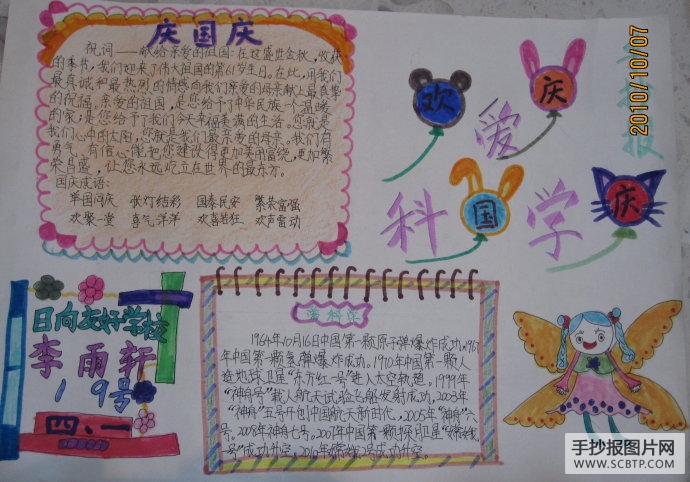 庆国庆
祝词——献给亲爱的祖国:在这盛世金秋,收获
的季节,我们迎来了伟大祖国的第61岁生日。在比,用我们
最真诚和最热烈的情感向我们亲爱的母亲献上最真挚
的祝福。亲爱的祖国,是您给予了中华民族一个温暖
的家;是您给予了我们今天幸福美满的生活。您就是
我们心中的太阳,您就是我们最亲爱的母亲。我们有
勇气、有信心能把您建设得更加美丽富饶,更加繁
荣昌盛,让您永远屹立在世界的最东方。
国庆成语:
举国同庆 张灯结彩 国泰民安 繁荣富强
欢聚一堂 喜气洋洋 欢喜若狂 欢声雷动
欢庆
爱
国庆
科学
小报
2010/10/07
日向友好学校
李雨轩
19号
四、一
1964年10月16日中国第一颗原子弹爆炸成功。1967
年中国第一颗氢弹爆炸成功。1970年中国第一颗人
造地球卫星"东方红一号"进入太空轨道。1999年
"神舟号"载人航天试验飞船发射成功。2003年
"神舟"五号开创中国航天新时代。2005年"神舟"六
号。2008年神舟七号。2007年中国第一颗探月卫星"嫦娥一
号"成功升空。2010年嫦娥2号成功升空。
手抄报图片网
WWW.SCBTP.COM